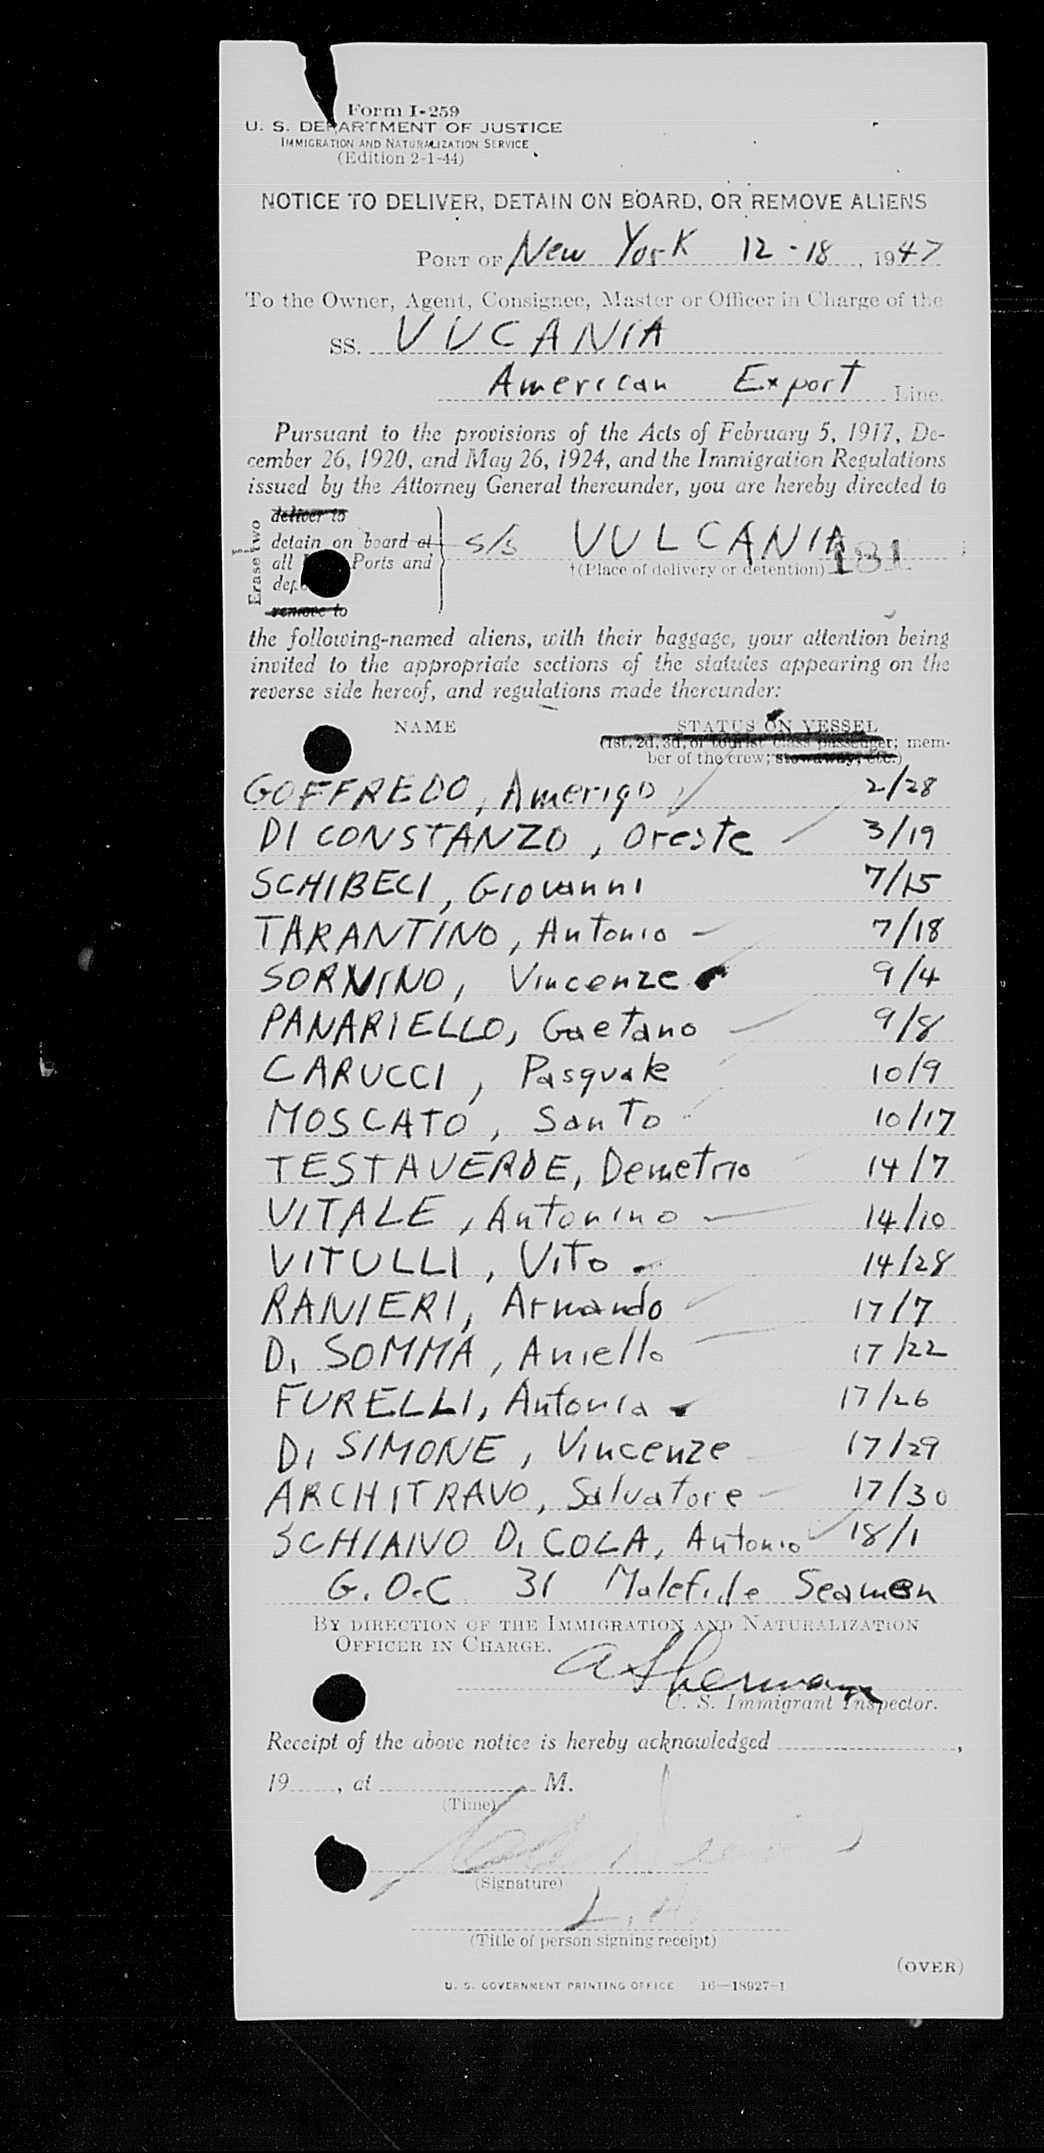 Form I-259
U. S. DEPARTMENT OF JUSTICE
IMMIGRATION AND NATURALIZATION SERVICE
(Edition 2-1-44)
NOTICE TO DELIVER, DETAIN ON BOARD, OR REMOVE ALIENS
PORT OF New York 12-18, 1947
To the Owner, Agent, Consignee, Master or Officer in Charge of the
SS. VUCANIA
American Export Line.
Pursuant to the provisions of the Acts of February 5, 1917, De-
cember 26, 1920, and May 26, 1924, and the Immigration Regulations
issued by the Attorney General thereunder, you are hereby directed to
Erase two
deliver to
detain on board at S/S VULCANIA 181
all Ports and †(Place of delivery or detention)
remove to
the following-named aliens, with their baggage, your attention being
invited to the appropriate sections of the statutes appearing on the
reverse side hereof, and regulations made thereunder:
NAME STATUS ON VESSEL
(1st, 2d, 3d, or tourist class passenger; mem-
ber of the crew; stowaway, etc.)
GOFFREDO, Amerigo 2/28
DI CONSTANZO, Oreste 3/19
SCHIBECI, Giovanni 7/15
TARANTINO, Antonio 7/18
SORNINO, Vincenze 9/4
PANARIELLO, Gaetano 9/8
CARUCCI, Pasquale 10/9
MOSCATO, Santo 10/17
TESTAVERDE, Demetrio 14/7
VITALE, Antonino 14/10
VITULLI, Vito 14/28
RANIERI, Armando 17/7
Di SOMMA, Aniello 17/22
FURELLI, Antonia 17/26
Di SIMONE, Vincenze 17/29
ARCHITRAVO, Salvatore 17/30
SCHIAIVO Di COLA, Antonio 18/1
G.O.C 31 Malefide Seamen
BY DIRECTION OF THE IMMIGRATION AND NATURALIZATION
OFFICER IN CHARGE.
A Sherman
U. S. Immigrant Inspector.
Receipt of the above notice is hereby acknowledged ,
19 , at M.
(Time)
(Signature)
(Title of person signing receipt)
(OVER)
U. S. GOVERNMENT PRINTING OFFICE 16—18927-1